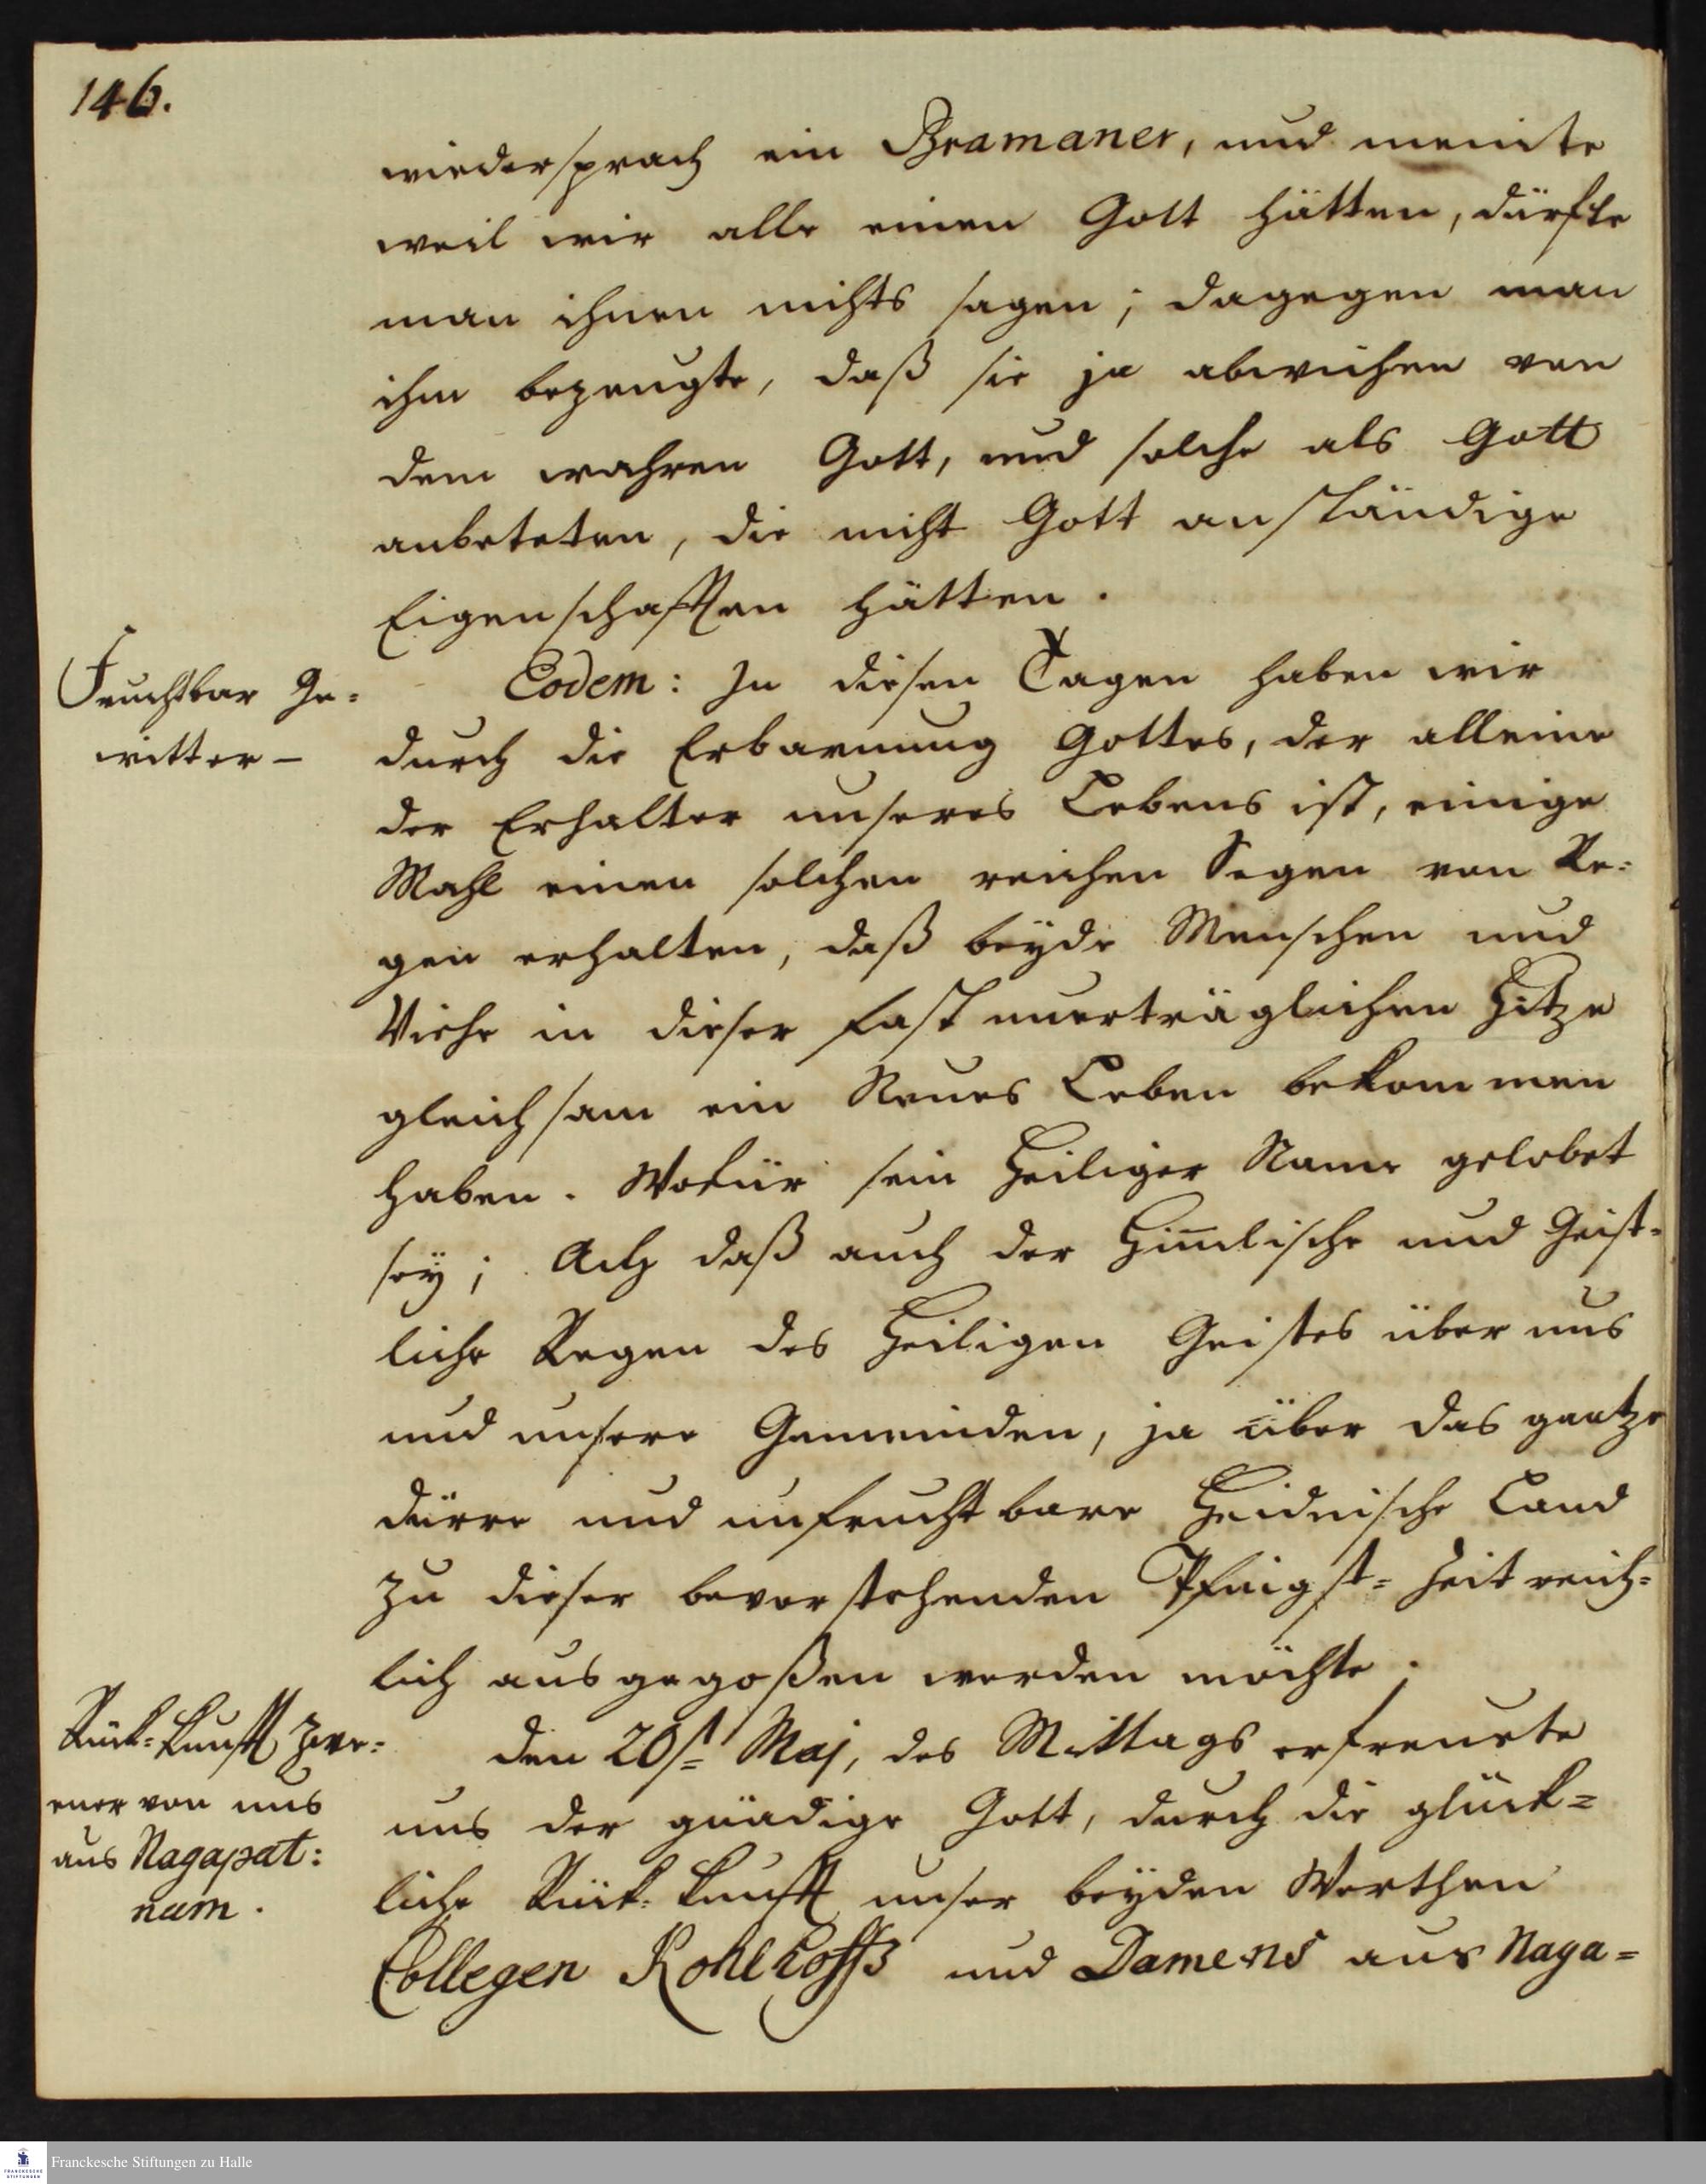 146.
wiedersprach ein Bramaner, und meinte
weil wir alle einen Gott hätten, dürfte
man ihnen nichts sagen; dagegen man
ihm bezeugte, daß sie ja abwichen von
dem wahren Gott, und solche als Gott
anbeteten, die nicht Gott anständige
Eigenschafften hätten.
Fruchtbar Ge=
witter –
Eodem: In diesen Tagen haben wir
durch die Erbarmung Gottes, der alleine
der Erhalter unseres Lebens ist, einige
Mahl einen solchen reichen Segen von Re=
gen erhalten, daß beÿde Menschen und
Viehe in dieser fast unerträglichen Hitze
gleichsam ein Neues Leben bekommen
haben. Wofür sein Heiliger Name gelobet
seÿ; Ach daß auch der Himlische und Geist=
liche Regen des Heiligen Geistes über uns
und unsere Gemeinden, ja über das gantze
dürre und unfruchtbare Heidnische Land
zu dieser bevorstehenden Pfingst=Zeit reich=
lich ausgegoßen werden möchte.
Rück=kunfft zwe=
ener von uns
aus Nagapat:
nam.
den 20st Maj, des Mittags erfreuete
uns der gnädige Gott, durch die glück=
liche Rück=kunfft unser beÿden Werthen
Collegen Kohlhoffs und Damens aus Naga=
Franckesche Stiftungen zu Halle
FRANCKESCHE STIFTUNGEN